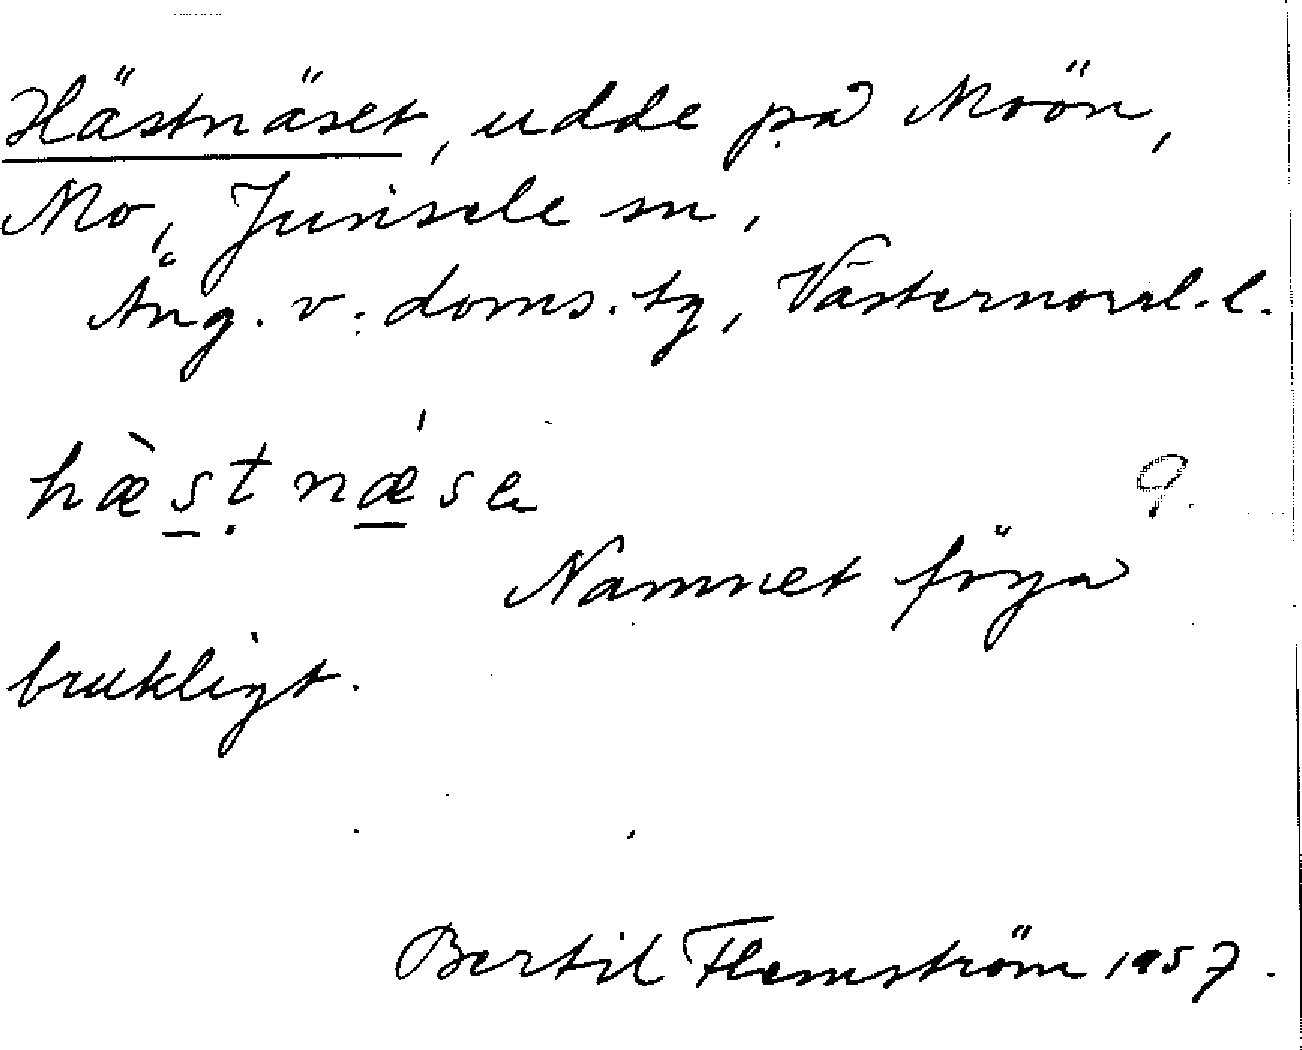 Hästnäset, udde på Moön,
Mo, Junsele sn,
Ång. v. doms. tg, Västernorrl. l.
hæ̀s̠ṭnǽ̠se
Namnet föga
brukligt.
Bertil Flemström 1957.